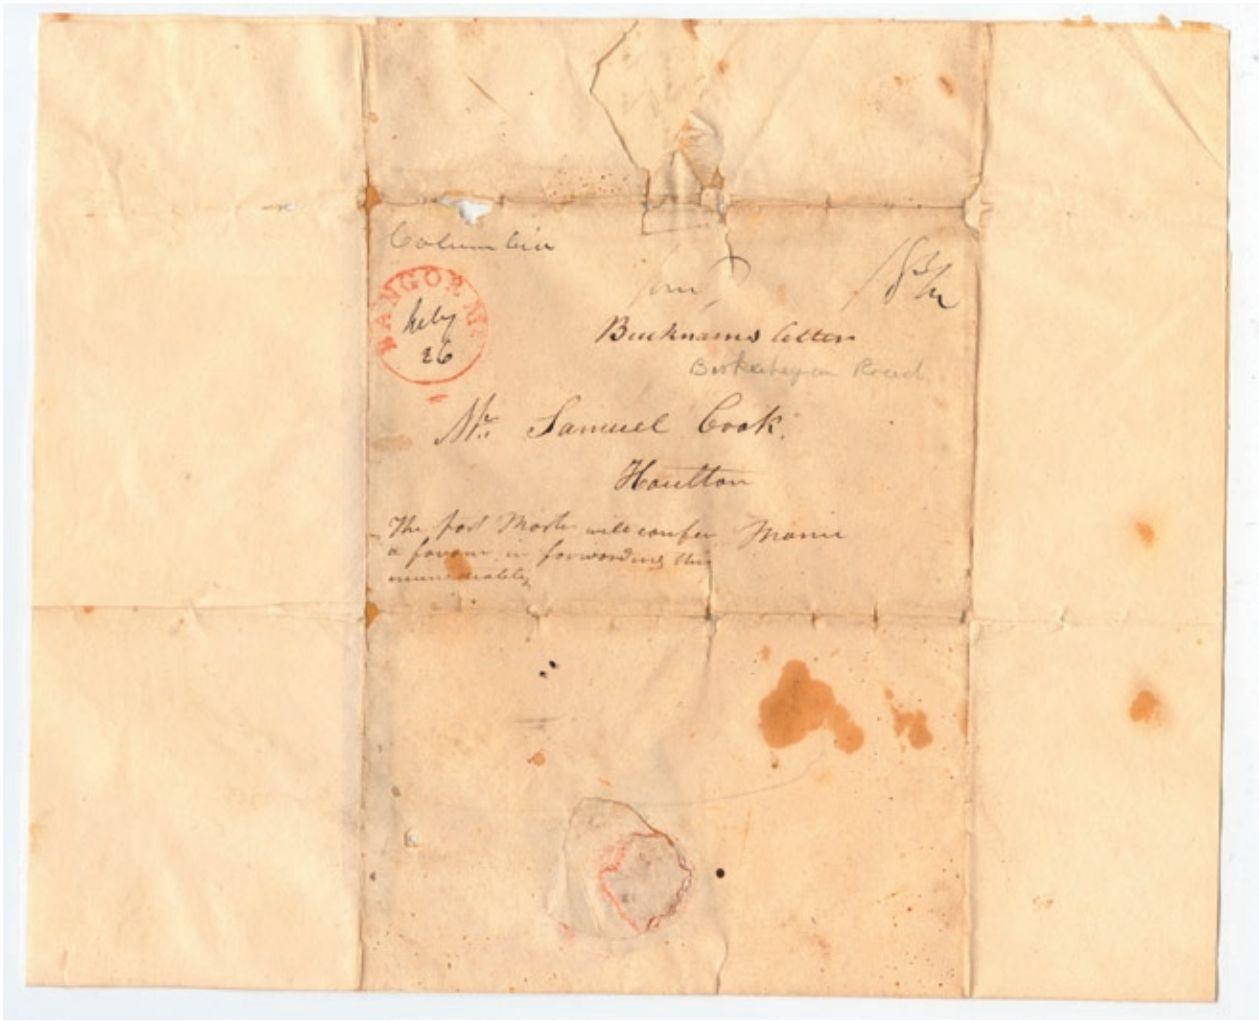 Columbia
BANGOR Me
Feby
26
18 3/4
Bucknams letter
Baskahegan Road
Mr. Samuel Cook.
Houlton
Maine
The post Master will confer
a favour in forwarding this
immediately